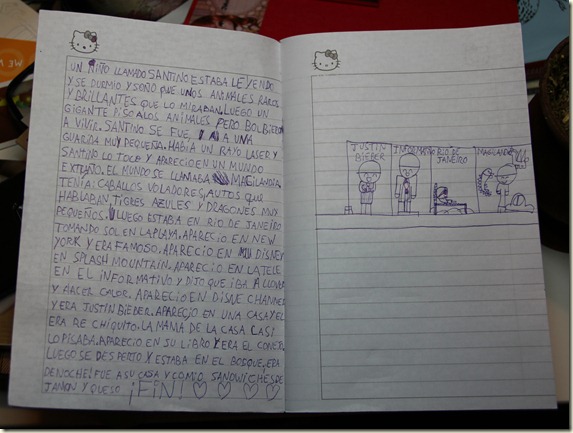 UN NIÑO LLAMADO SANTINO ESTABA LEYENDO
Y SE DURMIO Y SOÑO QUE UNOS ANIMALES RAROS
Y BRILLANTES QUE LO MIRABAN. LUEGO UN
GIGANTE PISO A LOS ANIMALES PERO BOLBIERON
A VIVIR. SANTINO SE FUE A UNA
GUARIDA MUY PEQUEÑA. HABIA UN RAYO LASER Y
SANTINO LO TOCO Y APARECIO EN UN MUNDO
EXTRAÑO. EL MUNDO SE LLAMABA MAGILANDIA
TENIA: CABALLOS VOLADORES, AUTOS QUE
HABLABAN, TIGRES AZULES Y DRAGONES MUY
PEQUEÑOS. LUEGO ESTABA EN RIO DE JANEIRO
TOMANDO SOL EN LA PLAYA. APARECIO EN NEW
YORK Y ERA FAMOSO. APARECIO EN DISNEY
EN SPLASH MOUNTAIN. APARECIO EN LA TELE
EN EL INFORMATIVO Y DIJO QUE IBA A LLOVER
Y HACER CALOR. APARECIO EN DISNE CHANNEL
Y ERA JUSTIN BIEBER. APARECIO EN UNA CASA Y EL
ERA RE CHIQUITO. LA MAMA DE LA CASA CASI
LO PISABA. APARECIO EN SU LIBRO Y ERA EL CONEJO
LUEGO SE DESPERTO Y ESTABA EN EL BOSQUE, ERA
DE NOCHE! FUE A SU CASA Y COMIO SANDWICHES DE
JAMON Y QUESO ¡FIN!
JUSTIN BIEBER
INFORMATIVO
RIO DE JANEIRO
MAGILANDIA